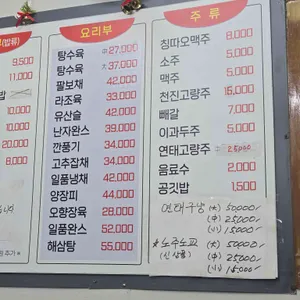 (밥류)
9,500
11,000
밥
10,000
10,000
20,000
8,000
요리부
탕수육 中 27,000
탕수육 大 37,000
팔보채 42,000
라조육 33,000
유산슬 42,000
난자완스 39,000
깐풍기 34,000
고추잡채 34,000
일품냉채 42,000
양장피 44,000
오향장육 28,000
일품완스 52,000
해삼탕 55,000
주류
칭따오맥주 8,000
소주 5,000
맥주 5,000
천진고량주 15,000
빼갈 7,000
이과두주 5,000
연태고량주 中 25000
음료수 2,000
공깃밥 1,500
연태구냥 (大) 50000
(中) 25000
(小) 15000
★노주노교 (大) 50000
(신상품) (中) 25000
(小) 15000